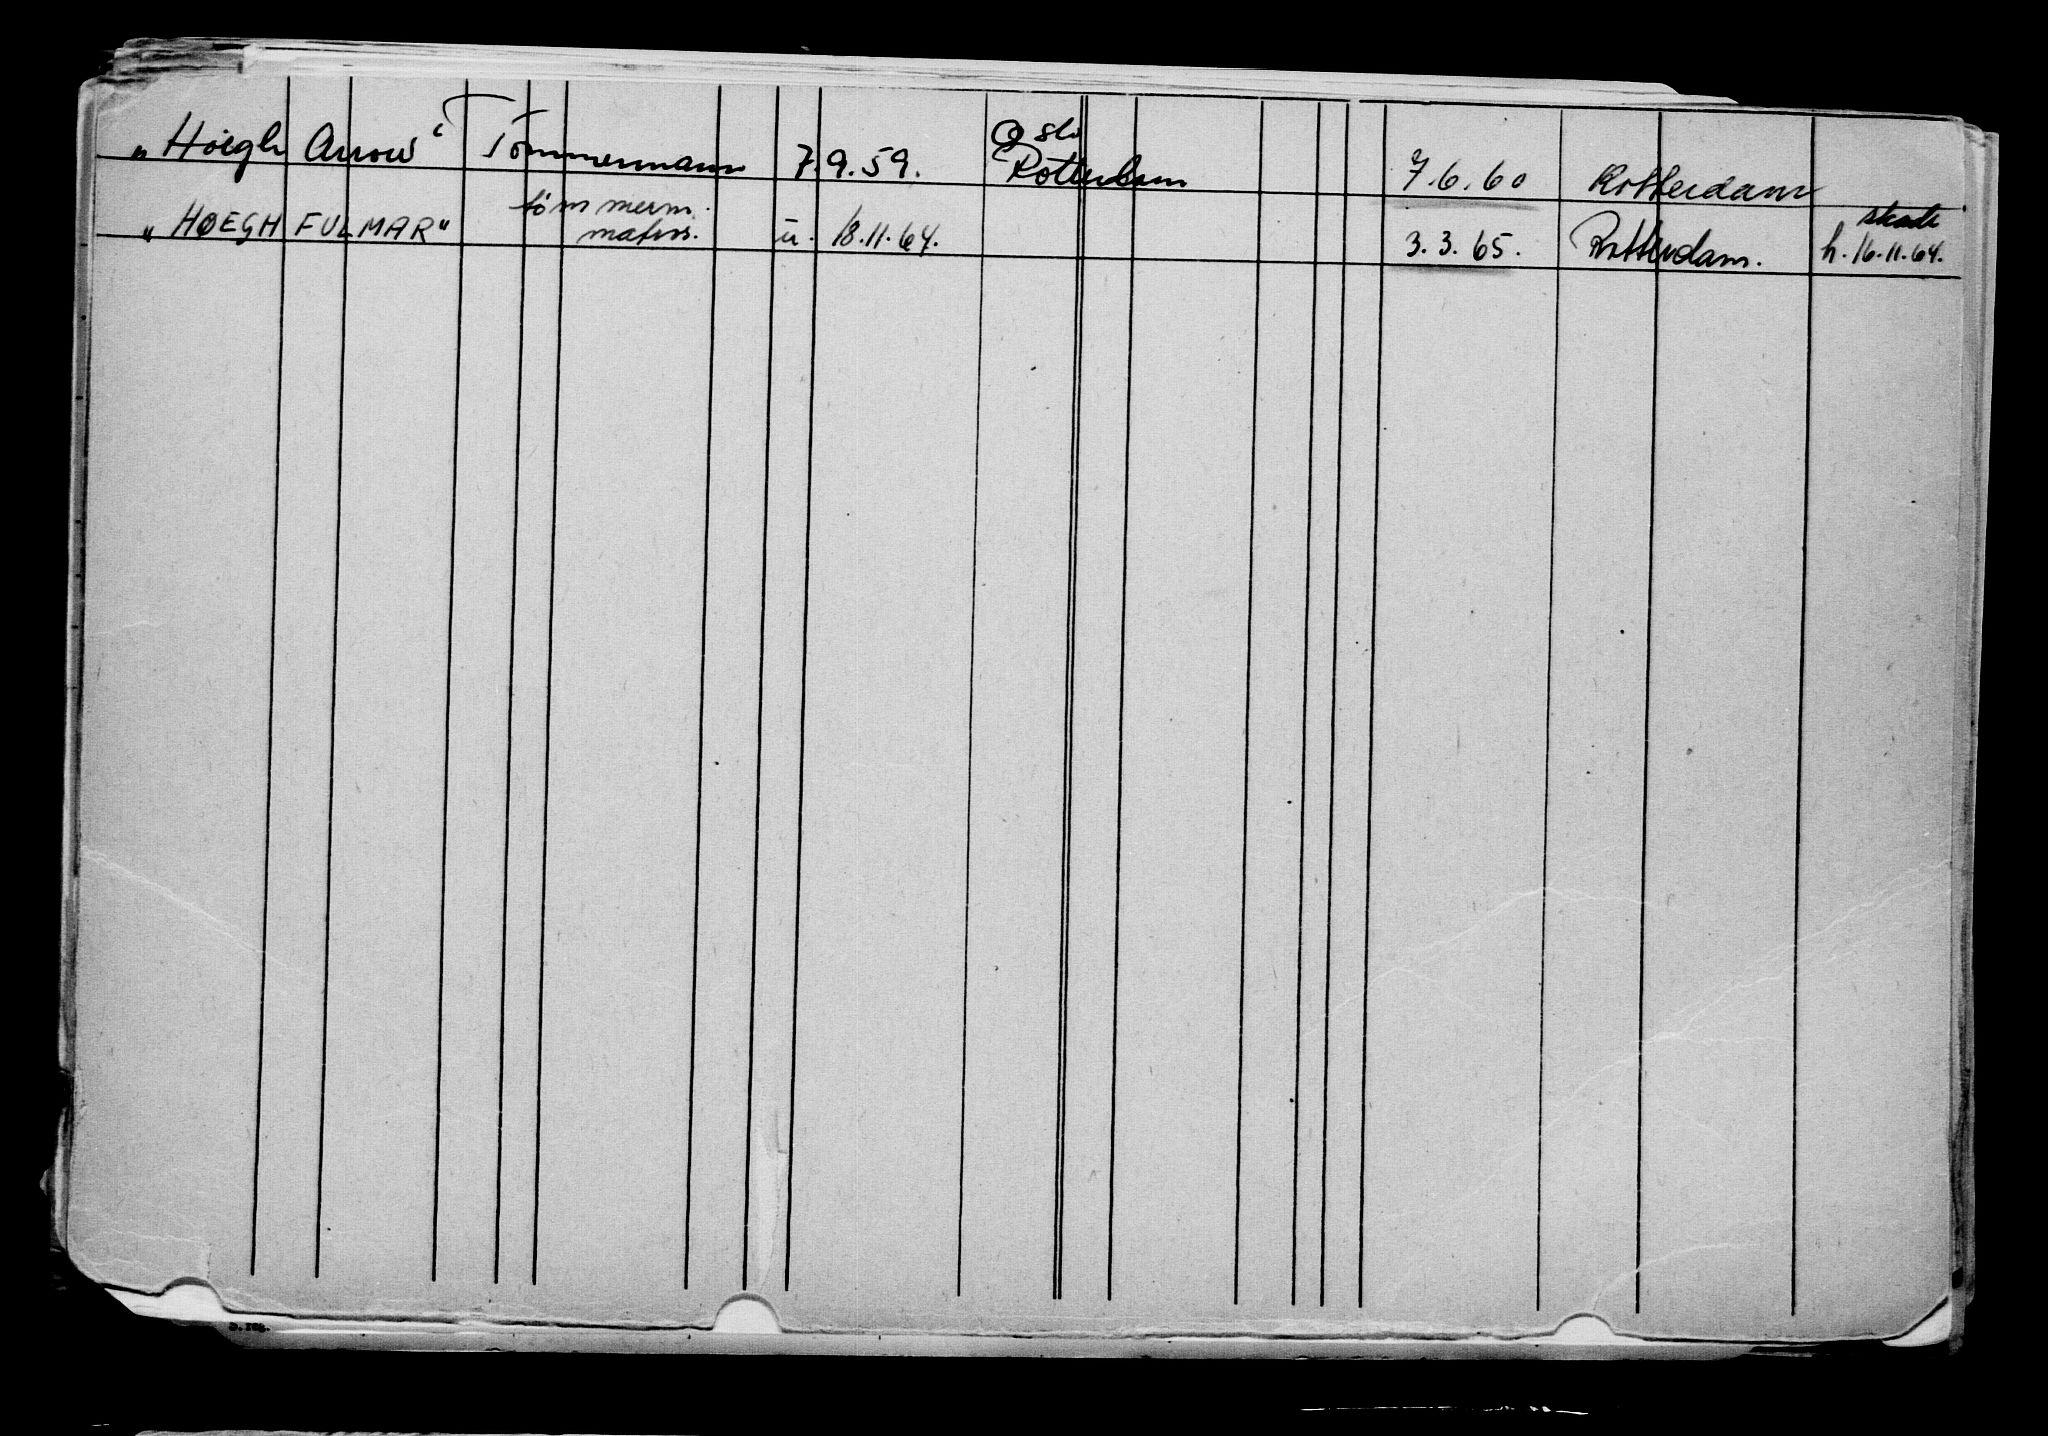 „Høegh Arrow“ Tømmermann 7.9.59. Oslo Rotterdam 7.6.60 Rotterdam
„HØEGH FULMAR" tømmerm. matros. u. 18.11.64. 3.3.65. Rotterdam. skade h. 16.11.64.